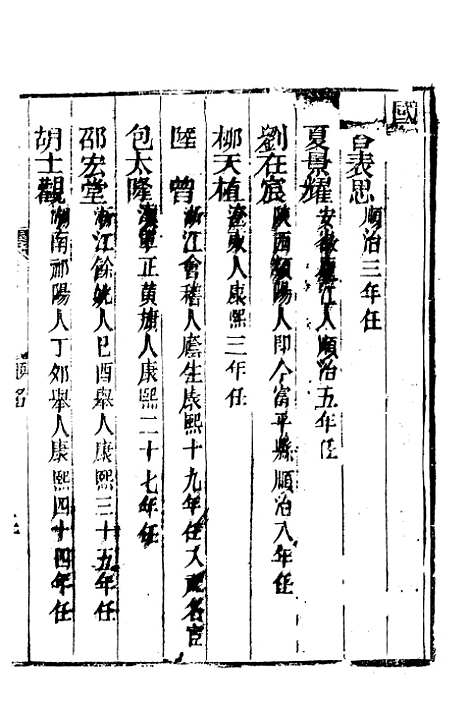 國
表思順治三年任
夏景耀安徽江人順治五年任
劉在宸陝西頻陽人即今富平縣順治八年任
柳天植遼東人康熙三年任
陸曾浙江會稽人廕生康熙十九年任入名宦
包太隆漢軍正黃旗人康熙二十七年任
邵宏堂浙江餘姚人己酉舉人康熙三十五年任
胡士觀湖南祁陽人丁卯舉人康熙四十四年任